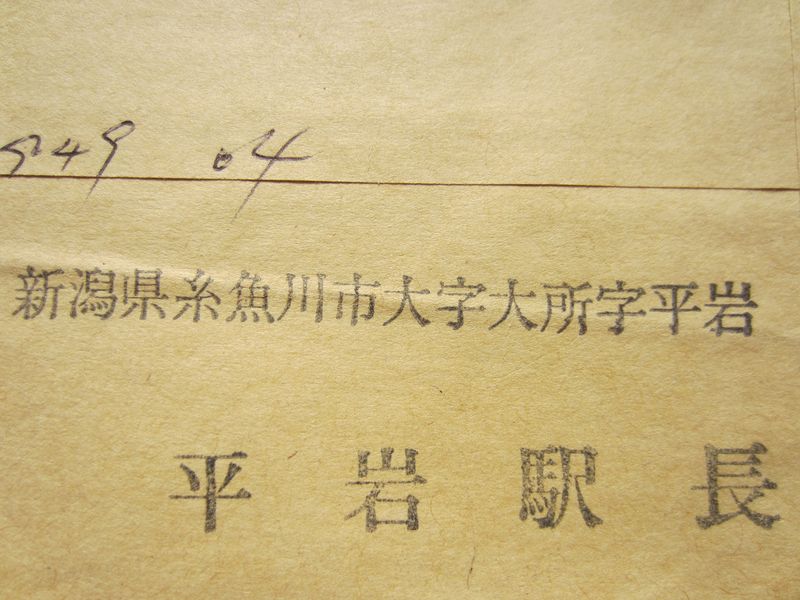 949 04
新潟県糸魚川市大字大所字平岩
平岩駅長